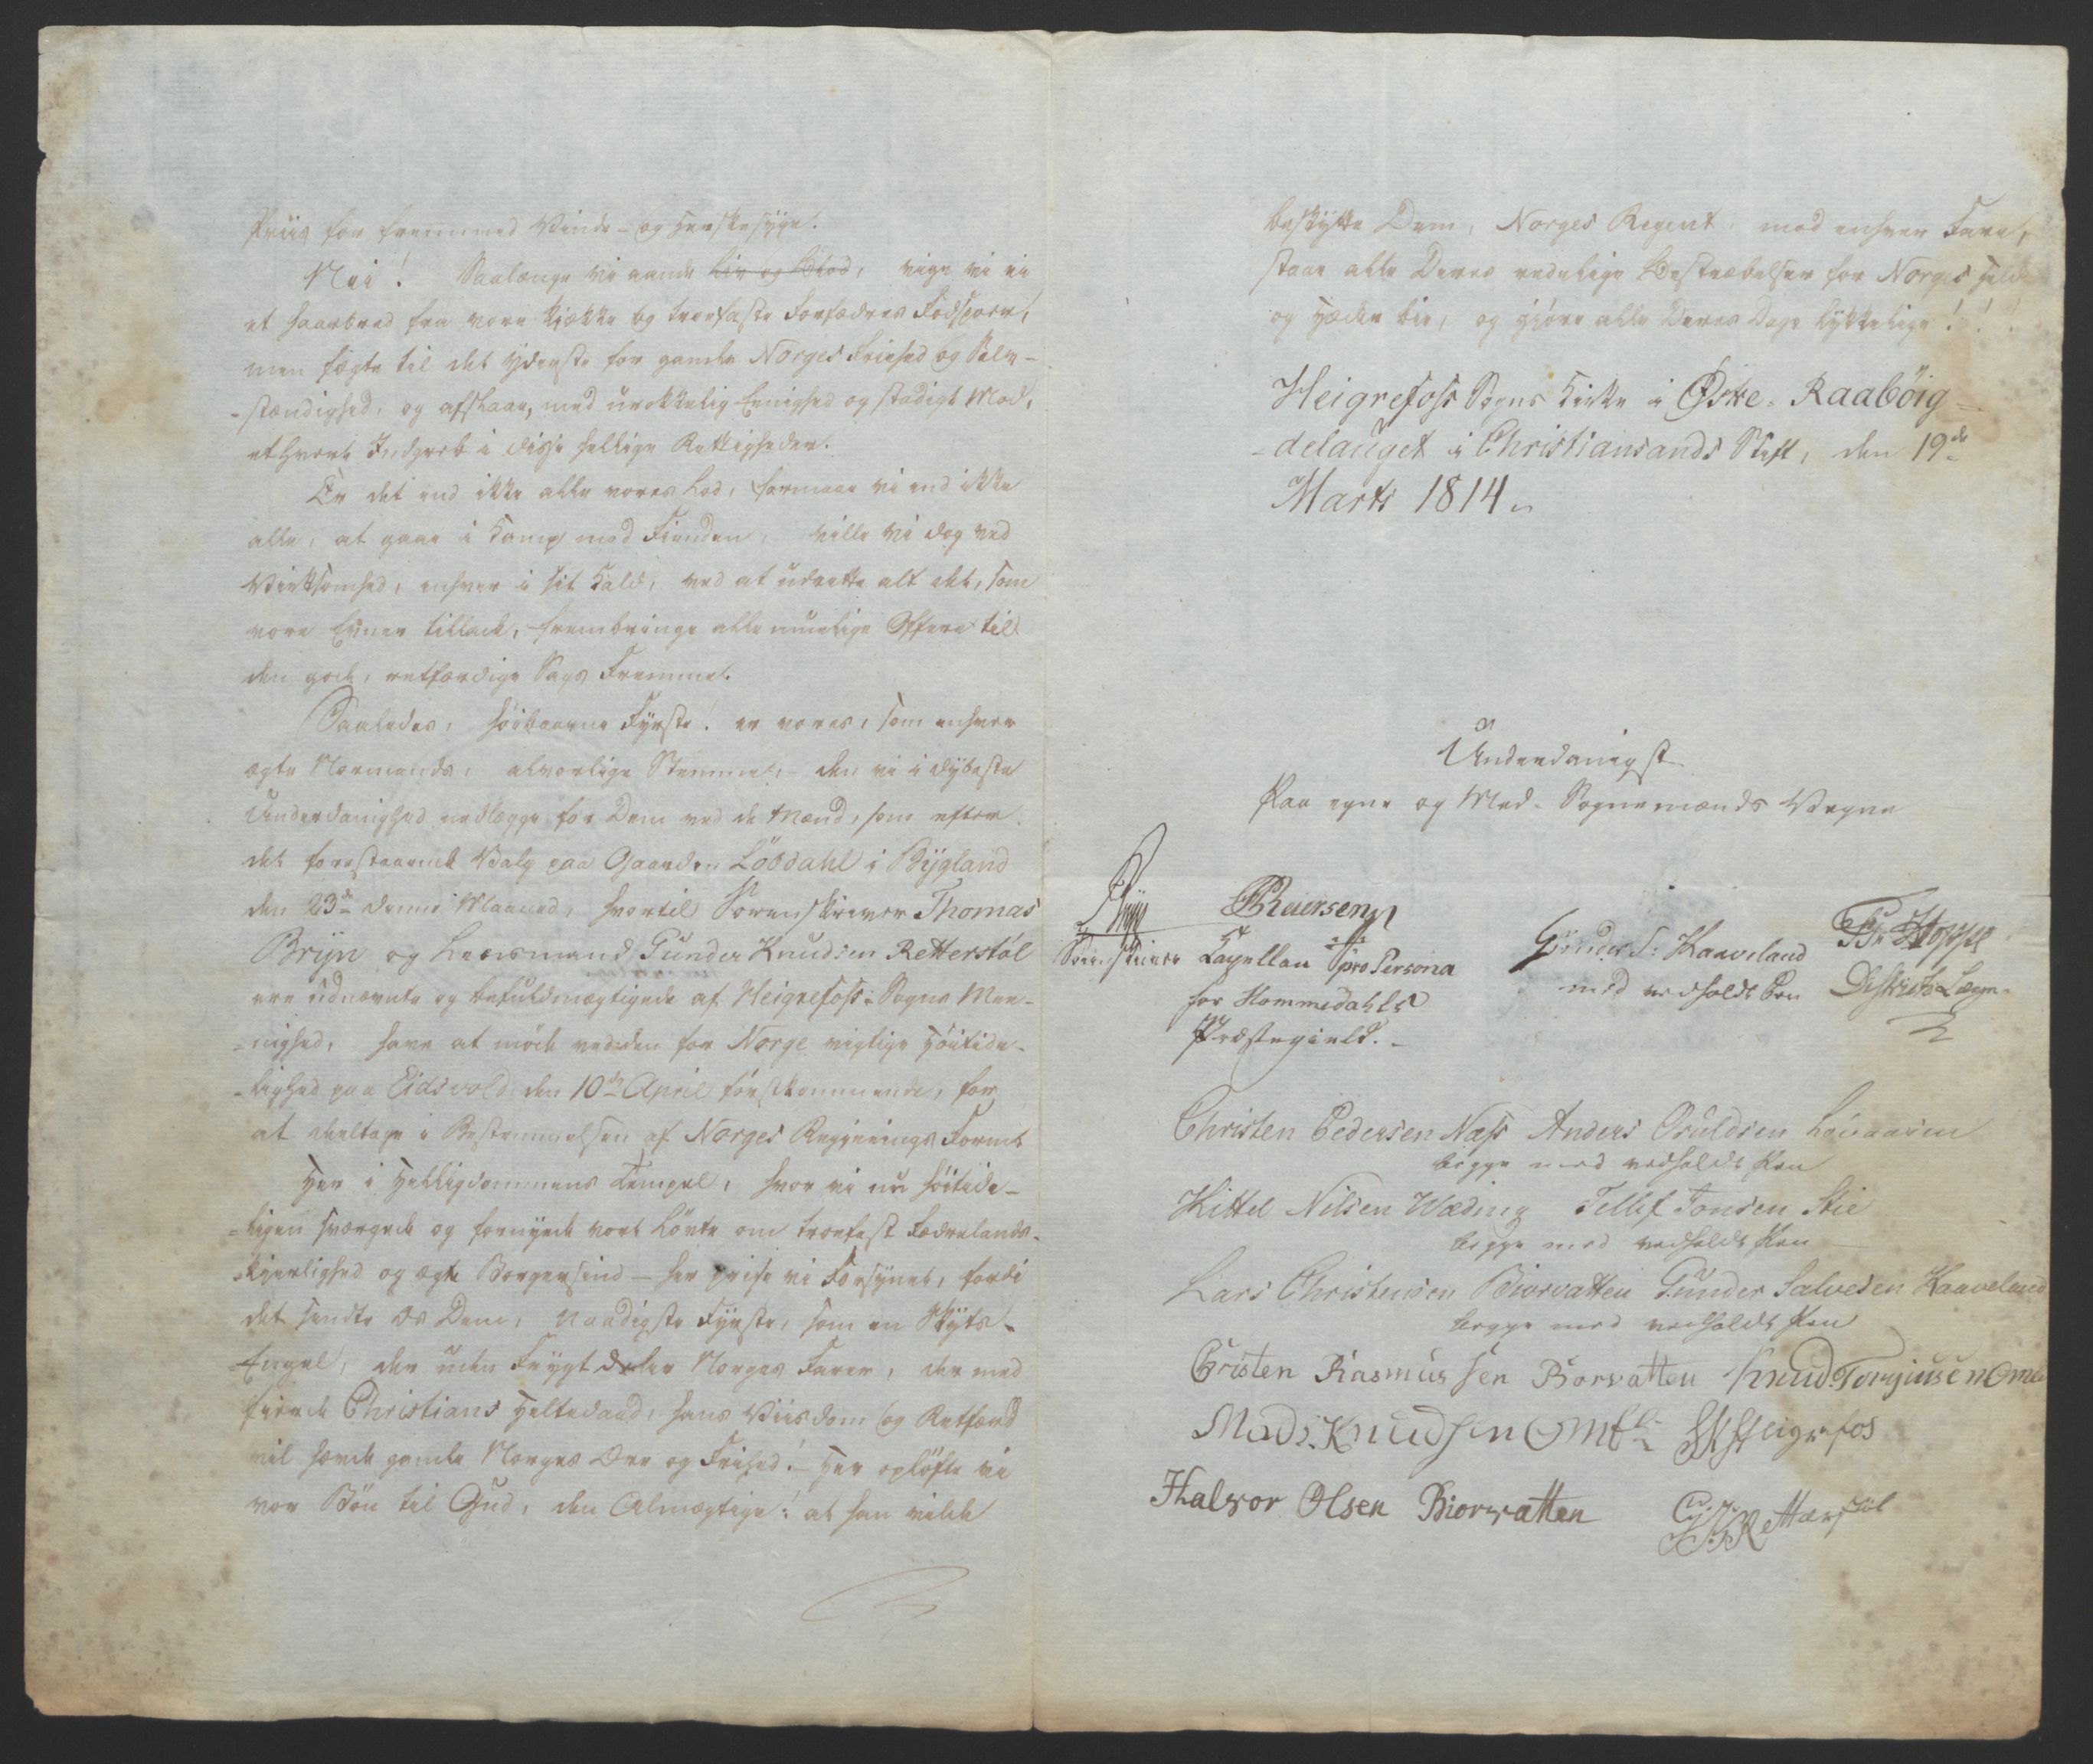 Priis for fremmed Vinde- og Herskesyge.
Nei! Saalænge vi aande Liv og Blod, vige vi ei
et Haarbred fra vore kjække og troefaste Forfædres Fodspoer,
men fægte til det yderste for gamle Norges Frihed og Selv-
-stændighed, og afslaae, med urokkelig Eenighed og stadigt Mod,
ethvert Indgreb i disse hellige Rettigheder.
Er det end ikke alle vores Lod, formaae vi end ikke
alle, at gaae i Kamp mod Fienden, ville vi dog ved
Virksomhed, enhver i sit Kald, ved at udrette alt det, som
vore Evner tillade, frembringe alle muelige Offere til
den gode, retfærdige Sags Fremme.
Saaledes, høibaarne Fyrste! er vores, som enhver
ægte Normands, alvorlige Stemme, - den vi i dybeste
Underdanighed nedlægge for Dem ved de Mænd, som efter
det forestaaende Valg paa Gaarden Løvdahl i Bygland
den 23de denne Maaned, hvortil Sorenskriver Thomas
Bryn og Leensmand Gunder Knudsen Retterstøl
ere udnævnte og befuldmægtigede af Heigrefoss-Sogns Mee-
-nighed, have at møde ved den for Norge vigtige Høitide-
-lighed paa Eidsvold den 10de April førstkommende, for
at deeltage i Bestemmelsen af Norges Regjerings Form.
Her i Helligdommens Tempel, hvor vi nu høitide-
-ligen sværgede og fornyede vort Løvte om troefast Fædrelands-
-kjerlighed og ægte Borgersind - her prise vi Forsynet, fordi
det sendte os Dem, Naadigste Fyrste, som en Skyts-
-Engel, der uden Frygt deler Norges Farer, der med
fierde Christians Heltedaad, hans Viisdom og Retfærd
vil hævde gamle Norges Ære og Frihed! - Her opløfte vi
vor Bøn til Gud, den Almægtige: at han vilde
beskytte Dem, Norges Regent, mod enhver Fare,
staae alle Deres redelige Bestræbelser for Norges Held
og Hæder bie, og gjøre alle Deres Dage lykkelige!!!
Heigrefoss Sogns Kirke i Østre-Raabøig-
-delauget i Christiansands Stift, den 19de
Marts 1814.
Underdanigst
Paa egne og Med-Sognemænds Vegne
Bryn
Sorenskriver
Reiersen
Capellan pro Persona
for Hommedahls
Præstegield.
Gunder S: Kaaveland
med vedholdt Pen
Hoppe
Districts Læge
Christen Pedersen Næss Anders Osuldsen Løvaasen
begge med vedholdt Pen
Kittel Nilsen Wæding Tellef Jonsen Stie
begge med vedholdt Pen
Lars Christensen Biorvatten Gunder Salvesen Kaaveland
begge med vedholdt Pen
Cristen Rasmussen Borvatten Knud Torgiusen Omli
Mads Knudsen Omli Heigrefos
Halvor Olsen Biorvatten
Rettærstøl